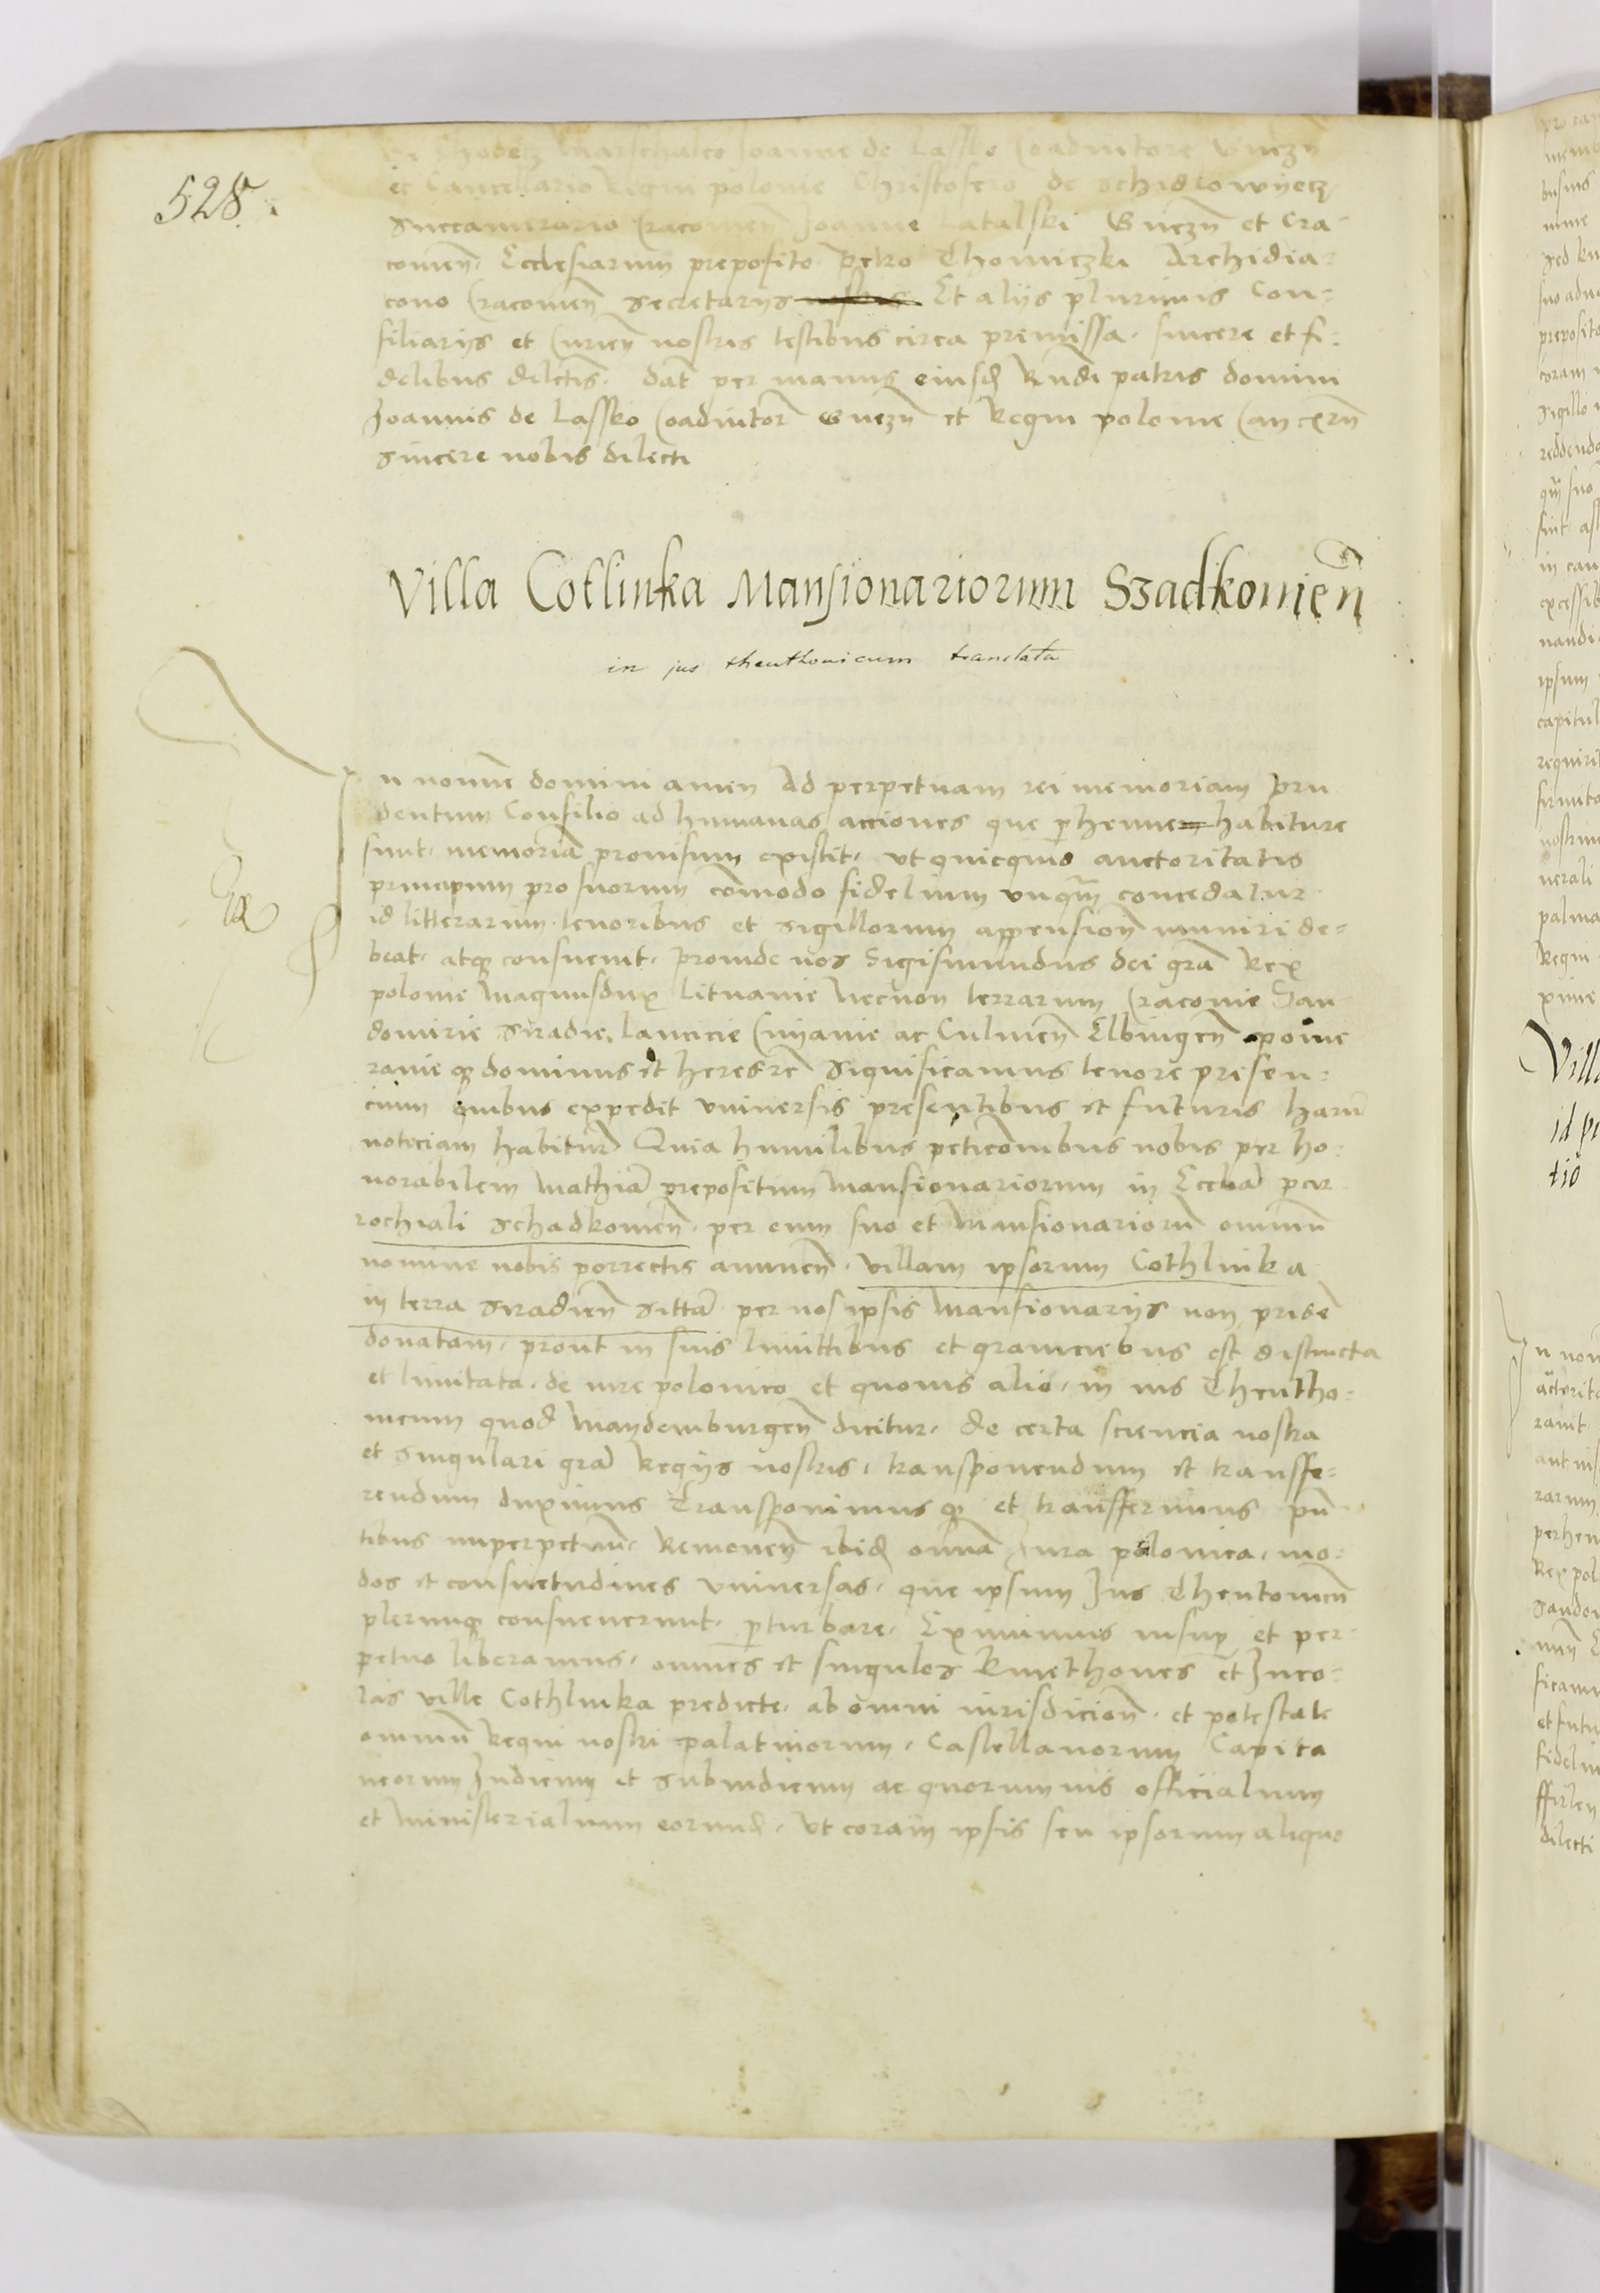 528.
Marschalco Joanne de Lassko Coadiutore Gnezn
et Cancellario Regni polonie Christofero de Schidlowyetz
Succamerario Cracomen Joanne Latalski Gnezn et Cra-
comen. Ecclesiarum preposito Petro Thomiczki Archidia-
cono Cracomen Secretarys Et alys plurimis Con-
siliarys et Curien nostris testibus circa premissa. sincere et fi-
delibus dilectis. dat per manus eiusd Rndi patris domini
Joannis de Lassko Coadiutor Gnezn et Regni polonie
sincere nobis dilecti
Villa Cotlinka Mansionariorum Szadkomien
in jus theuthonicum translata
In nomine domini amen Ad perpetuam rei memoriam pru
dentum Consilio ad humanas acciones que perhenne habiture
sunt. memoria provisum existit. ut quicquid auctoritatis
principum pro suorum comodo fidelium unqm concedatur
id litterarum tenoribus et sigillorum appension muniri de-
beat. atq consuevit. proinde nos Sigismundus dei gra Rex
polonie Magnusdux Lituanie Necnon terrarum Cracovie San
domirie Siradie, Lancicie Cuyavie ac Culmen Elbingen pome
ranie q dominus et heres re Significamus tenore presen-
cium quibus expedit universis presentibus et futuris harum
noticiam habitur Quia humilibus peticonibus nobis per ho-
norabilem Mathia prepositum Mansionariorum in Eccl'ia par
rochiali Schadkomen. per eum suo et Mansionarioru omnium
nomine nobis porrectis annuen. villam ipsorum Cothlinka
in terra Siradien sitta per nos ipsis Mansionarys non pride
donatam. prout in suis limittibus et graniciebus est distincta
et limitata. de iure polonico et quovis alio. in ius Theutho-
nicum quod Maydemburgen dicitur. de certa sciencia nostra
et singulari gra Regys nostris. transponendum et transffe-
rendum duximus Transponimus q et transfferimus pn
tibus inperpetuu. Removen ibid omnia Jura polonica. mo-
dos et consuetudines universas. que ipsum Jus Theutonicu
plerunq consueverunt. perturbare. Eximimus insup et per-
petuo liberamus. omnes et singulos Kmethones et Inco-
las ville Cothlinka predicte. ab omni iurisdicion. et potestate
omnium Regni nostri palatinorum. Castellanorum Capita
neorum Judicum et Subiudicum ac quorumvis officialium
et Ministerialium eorund. Ut coram ipsis seu ipsorum aliquo